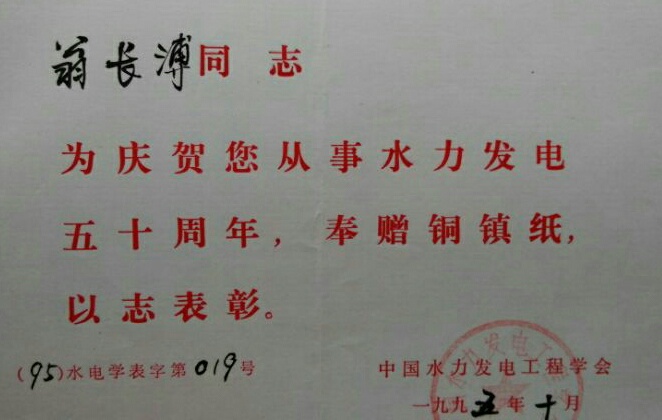 翁长溥同志
为庆贺您从事水力发电
五十周年，奉赠铜镇纸，
以志表彰。
(95)水电学表字第019号
中国水力发电工程学会
一九九五年十月